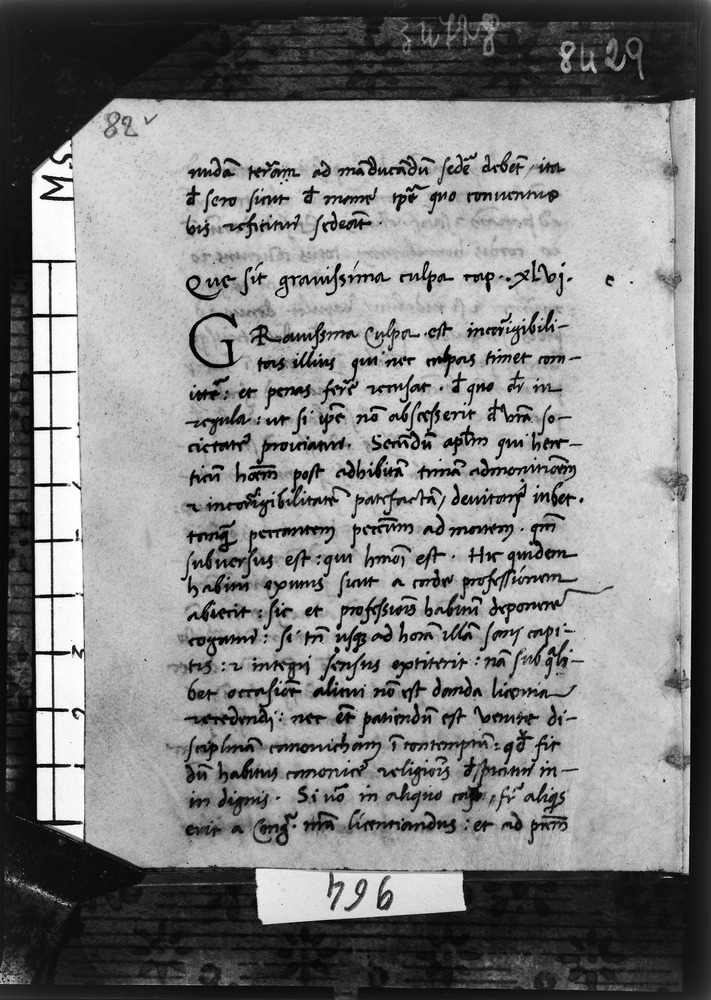 34728
8429
82v
MS
nudā terrā ad māducādū sedē debēt / ita
đ sero sicut đ mane tpē quo conventus
bis reficitur sedeāt.
Que sit gravissima culpa cap. xlvi. c.
GRavissima Culpa est incorrigibili-
tas illius qui nec culpas timet com-
ittē: et penas ferē recusat. đ quo dr in
regula: ut si ipē nō abscesserit đ vrā so-
cietate proiciatur. Secūdū aplm qui here-
ticū hoēm post adhibitā trinā admonitionem
et incorrigibilitatē patefactā / devitari iubet.
tanq̄ peccantem peccm̄ ad mortem. qm̄
subversus est: qui hmōi est. Hic quidem
habitu exutus sicut a corde professionem
abiecit: sic et professiōis habitū deponere
cogatur: si tn̄ usq; ad horā illā sani capi-
tis: et integri sensus extiterit: nā sub q̄li-
bet occasiōe alicui nō est danda licentia
recedendi: nec ēt patiendū est venire di-
sciplinā canonicham ī contemptū: qđ fit
dū habitus canonice religiōis đspicitur in-
in dignis. Si vō in aliquo casu fr aliqs
erit a Cong. nrā licentiandus: et ad
496